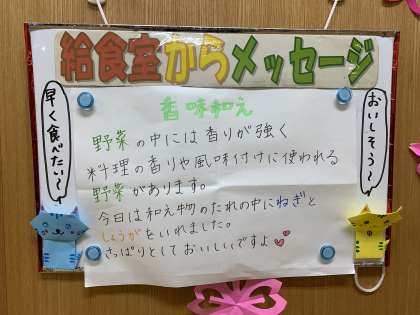 給食室からメッセージ
香味和え
野菜の中には香りが強く
料理の香りや風味付けに使われる
野菜があります。
今日は和え物のたれの中にねぎと
しょうがをいれました。
さっぱりとしておいしいですよ
早く食べたい〜
おいしそう〜